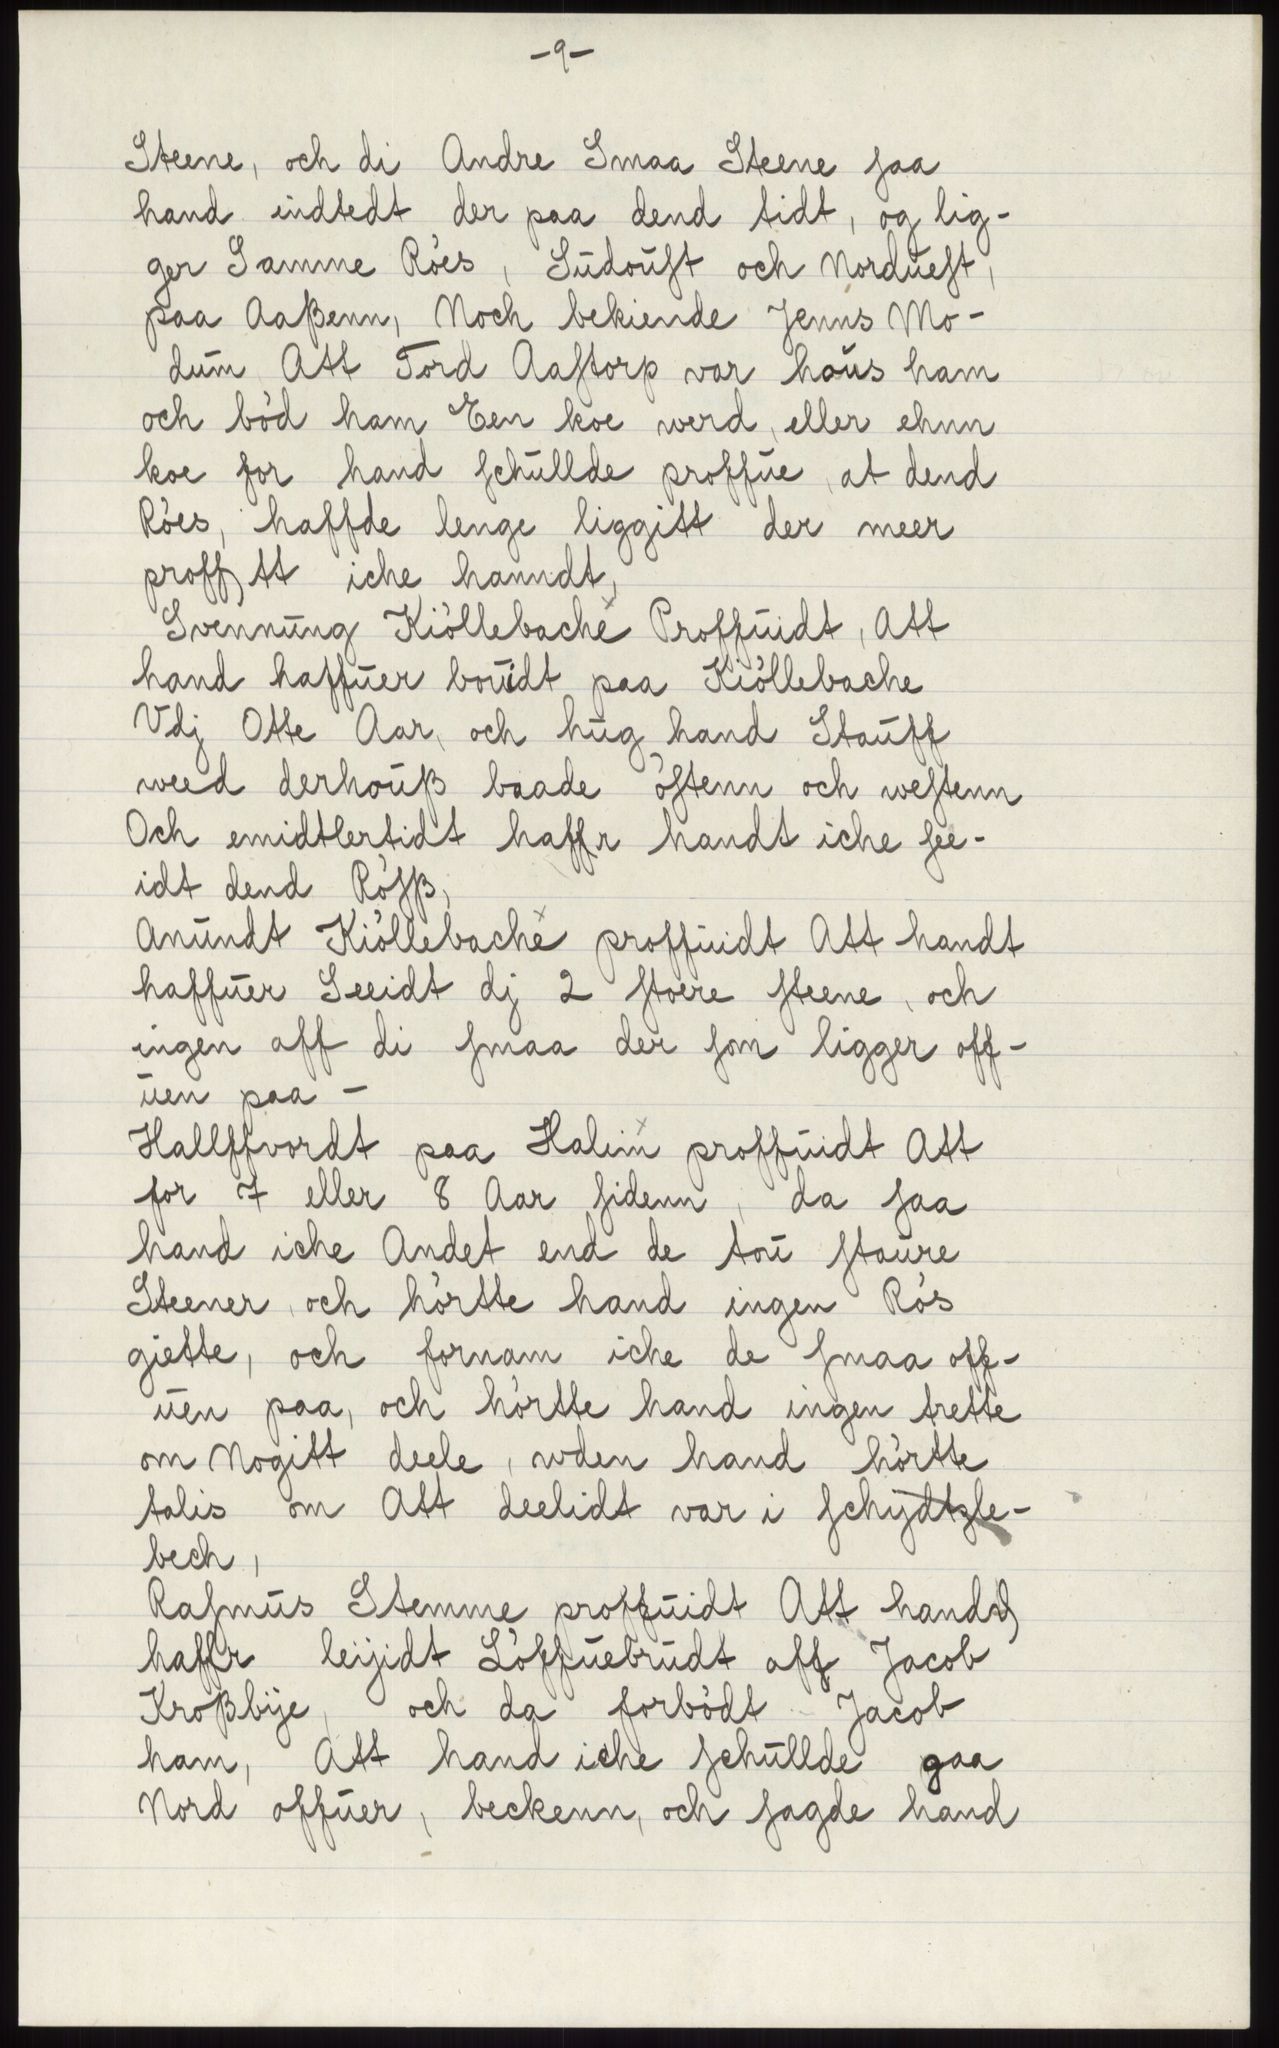 -9-
Steene, och di Andre Smaa Steene saa
hand indtedt der paa dend tidt, og lig-
ger Samme Röes, Südoüst och Nordüest,
paa Aaßenn, Noch bekiende Jenns Mo-
düm Att Tord Aastorp var hoüs ham
och böd ham Een koe werd, eller ehnn
koe for hand schüllde proffüe, at dend
Röes, haffde lenge liggitt der meer
proff) tt iche hanndt,
Svennüng Kiöllebache Proffüidt, Att
hand haffüer boüidt paa Kiöllebache
Vdj Otte Aar, och hüg hand Staüff
weed derhoüß baade östenn och westenn
Och emidtlertidt haffr handt iche see-
idt dend Rösß,
Anündt Kiöllebache proffüidt Att handt
haffüer Seeidt dj 2 stoere steene, och
ingen aff di smaa der som ligger off-
üen paa -
Hallffvordt paa Halim proffüidt Att
for 7 eller 8 Aar sidenn, da saa
hand iche Andet end de toü staüre
Steener, och hörtte hand ingen Rös
giette, och fornam iche de smaa off-
üen paa, och hörtte hand ingen trette
om Nogitt deele, wden hand hörtte
talis om Att deelidt var i schijdtzle-
bech,
Rasmüs Stemme proffüidt Att handd
haffr leijidt Löffüebrüdt aff Jacob
Kroßbÿe, och da forbödt Jacob
ham, Att hand iche schüllde gaa
Nord offüer, beckenn, och sagde hand